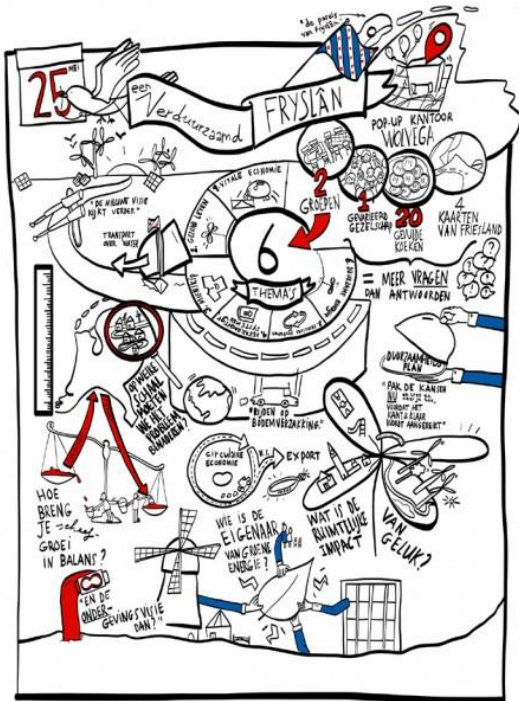 "de parels
van Fryslân
25
MEI
een
Verduurzaamd
FRYSLÂN
POP-UP KANTOOR
WOLVEGA
2
GROEPEN
1
GEVARIEERD
GEZELSCHAP
20
GEVULDE
KOEKEN
4
KAARTEN
VAN FRIESLAND
1. VITALE ECONOMIE
2. GEZOND LEVEN
6
THEMA'S
"DE NIEUWE VISIE
KIJKT VERDER"
TRANSPORT
OVER WATER
= MEER VRAGEN
DAN ANTWOORDEN
DUURZAAMHEIDS
PLAN
"PAK DE KANSEN
NU
VOORDAT HET
KANT & KLAAR
WORDT AANGEREIKT"
OP WELKE
SCHAAL
MOETEN
WE HET
PROBLEEM
BENADEREN?
"RIJDEN OP
BODEMVERZAKKING."
CIRCULAIRE
ECONOMIE
V.S.
EXPORT
HOE
BRENG
JE scheef-
GROEI
IN BALANS?
WIE IS DE
EIGENAAR
VAN GROENE
ENERGIE?
WAT IS DE
RUIMTELIJKE
IMPACT
VAN
GELUK?
"EN DE
ONDER-
GEVINGSVISIE
DAN?"